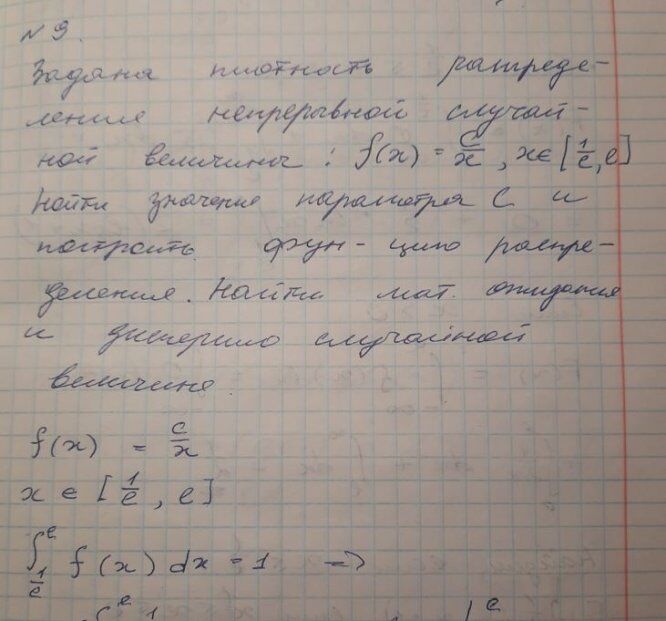 N 9.
Задана плотность распреде-
ления непрерывной случай-
ной величины: f(x) = c/x, x∈[1/e, e]
Найти значение параметра C и
построить фун-цию распре-
деления. Найти мат. ожидания
и дисперсию случайной
величине.
f(x) = c/x
x ∈ [1/e, e]
∫_{1/e}^{e} f(x) dx = 1 =>